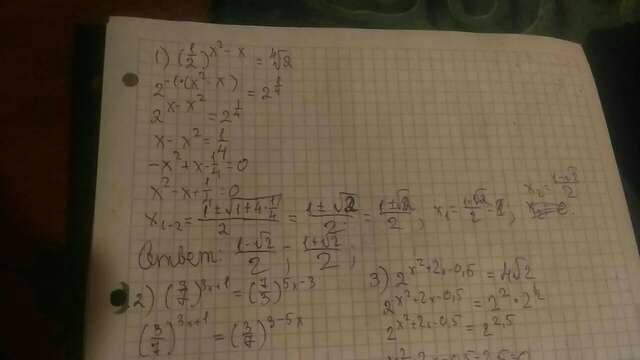 1) (1/2)^(x²-x) = ⁴√2
2^(-1·(x²-x)) = 2^(1/4)
2^(x-x²) = 2^(1/4)
x-x² = 1/4
-x²+x-1/4=0
x²-x+1/4=0
x₁₋₂= (1±√(1+4·1/4))/2 = (1±√2)/2 = (1±√2)/2 ;
Ответ: (1-√2)/2 ; (1+√2)/2 ;
2) (3/7)^(3x+1) = (7/3)^(5x-3)
(3/7)^(3x+1) = (3/7)^(3-5x)
3) 2^(x²+2x-0,5) = 4√2
2^(x²+2x-0,5) = 2² · 2^
2^(x²+2x-0,5) = 2^(2,5)